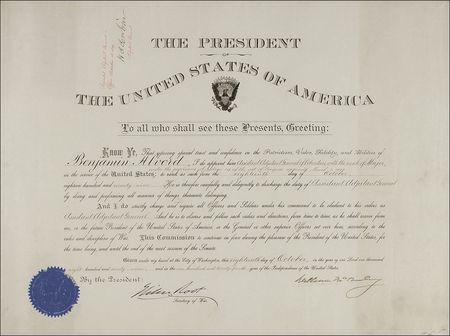 THE PRESIDENT
OF
THE UNITED STATES OF AMERICA
To all who shall see these Presents, Greeting:
Know Ye, That reposing special trust and confidence in the Patriotism, Valor, Fidelity, and Abilities of
Benjamin Alvord, I do appoint him Assistant Adjutant General of Volunteers, with the rank of Major,
in the service of the United States: to rank as such from the eighteenth day of October
eighteen hundred and ninety nine. He is therefore carefully and diligently to discharge the duty of Assistant Adjutant General
by doing and performing all manner of things thereunto belonging.
And I do strictly charge and require all Officers and Soldiers under his command to be obedient to his orders as
Assistant Adjutant General. And he is to observe and follow such orders and directions, from time to time, as he shall receive from
me, or the future President of the United States of America, or the General or other superior Officers set over him, according to the
rules and discipline of War. This Commission to continue in force during the pleasure of the President of the United States, for
the time being, and until the end of the next session of the Senate.
Given under my hand at the City of Washington, this eighteenth day of October, in the year of our Lord one thousand
eight hundred and ninety nine, and in the one hundred and twenty fourth year of the Independence of the United States.
By the President:
William McKinley
Elihu Root
Secretary of War.